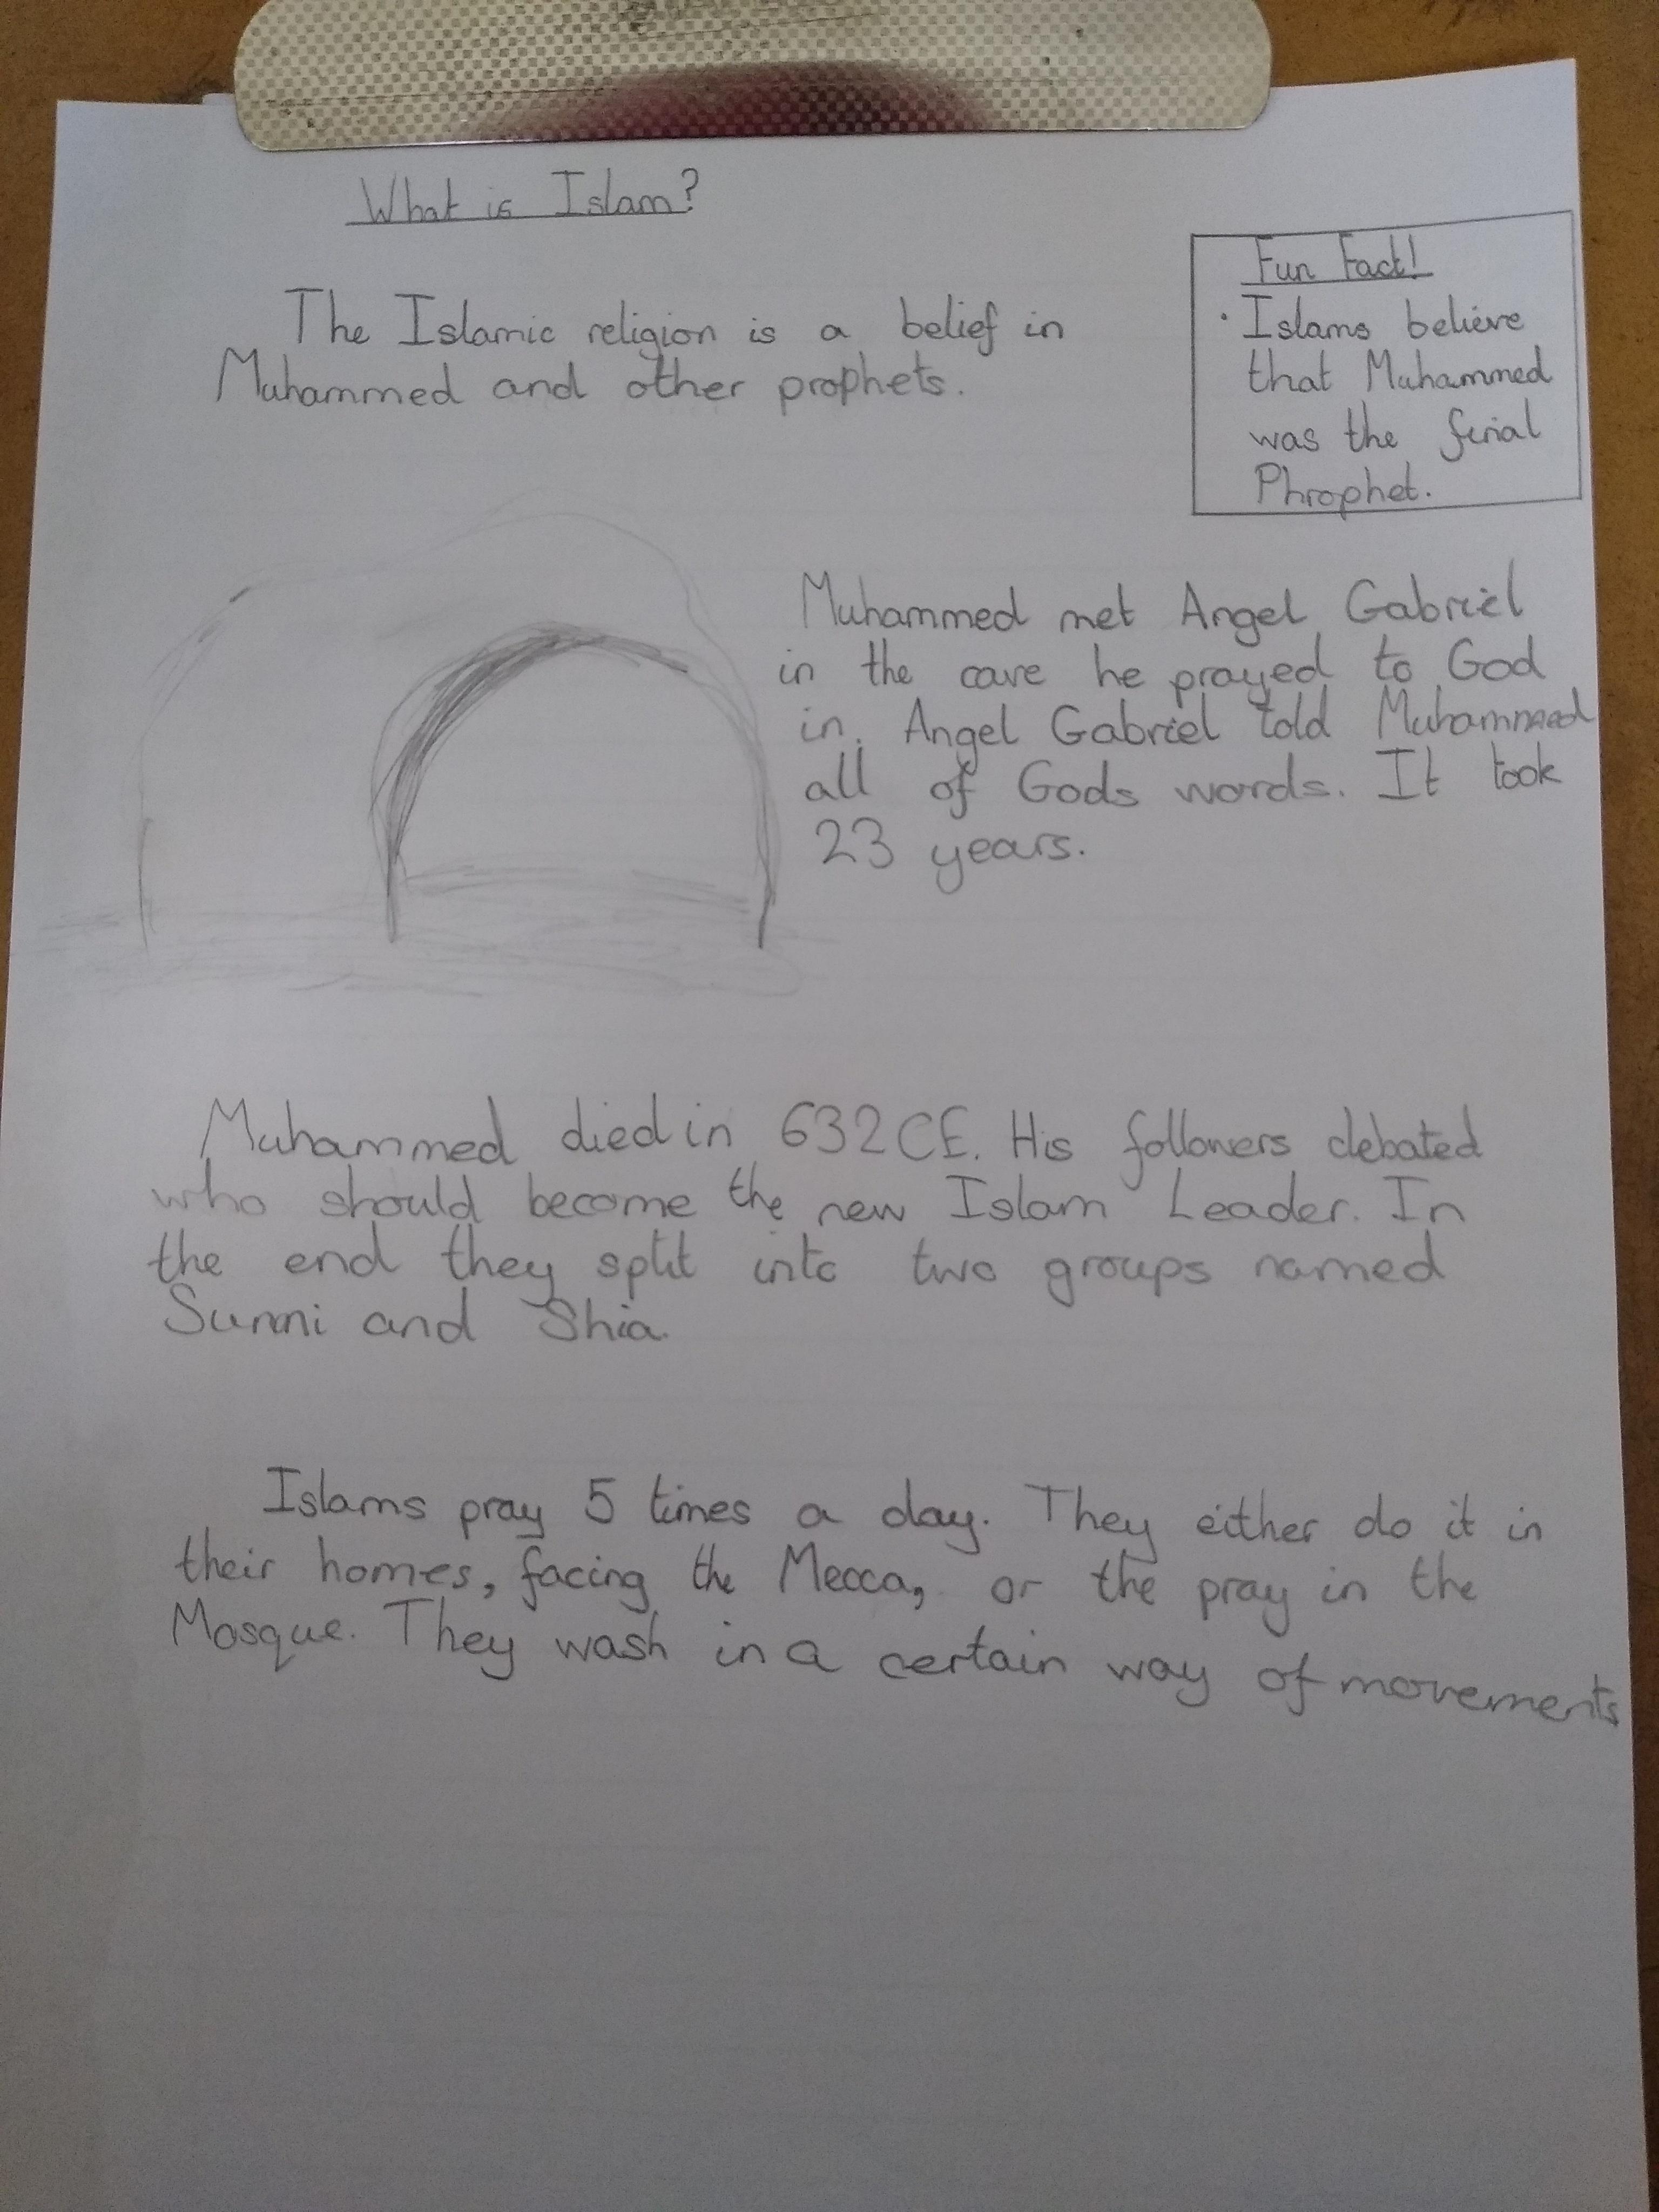 What is Islam?
The Islamic religion is a belief in
Muhammed and other prophets.
Fun Fact!
· Islams believe
that Muhammed
was the final
Phrophet.
Muhammed met Angel Gabriel
in the cave he prayed to God
in. Angel Gabriel told Muhammed
all of Gods words. It took
23 years.
Muhammed died in 632 CE. His followers debated
who should become the new Islam Leader. In
the end they split into two groups named
Sunni and Shia.
Islams pray 5 times a day. They either do it in
their homes, facing the Mecca, or the pray in the
Mosque. They wash in a certain way of movements